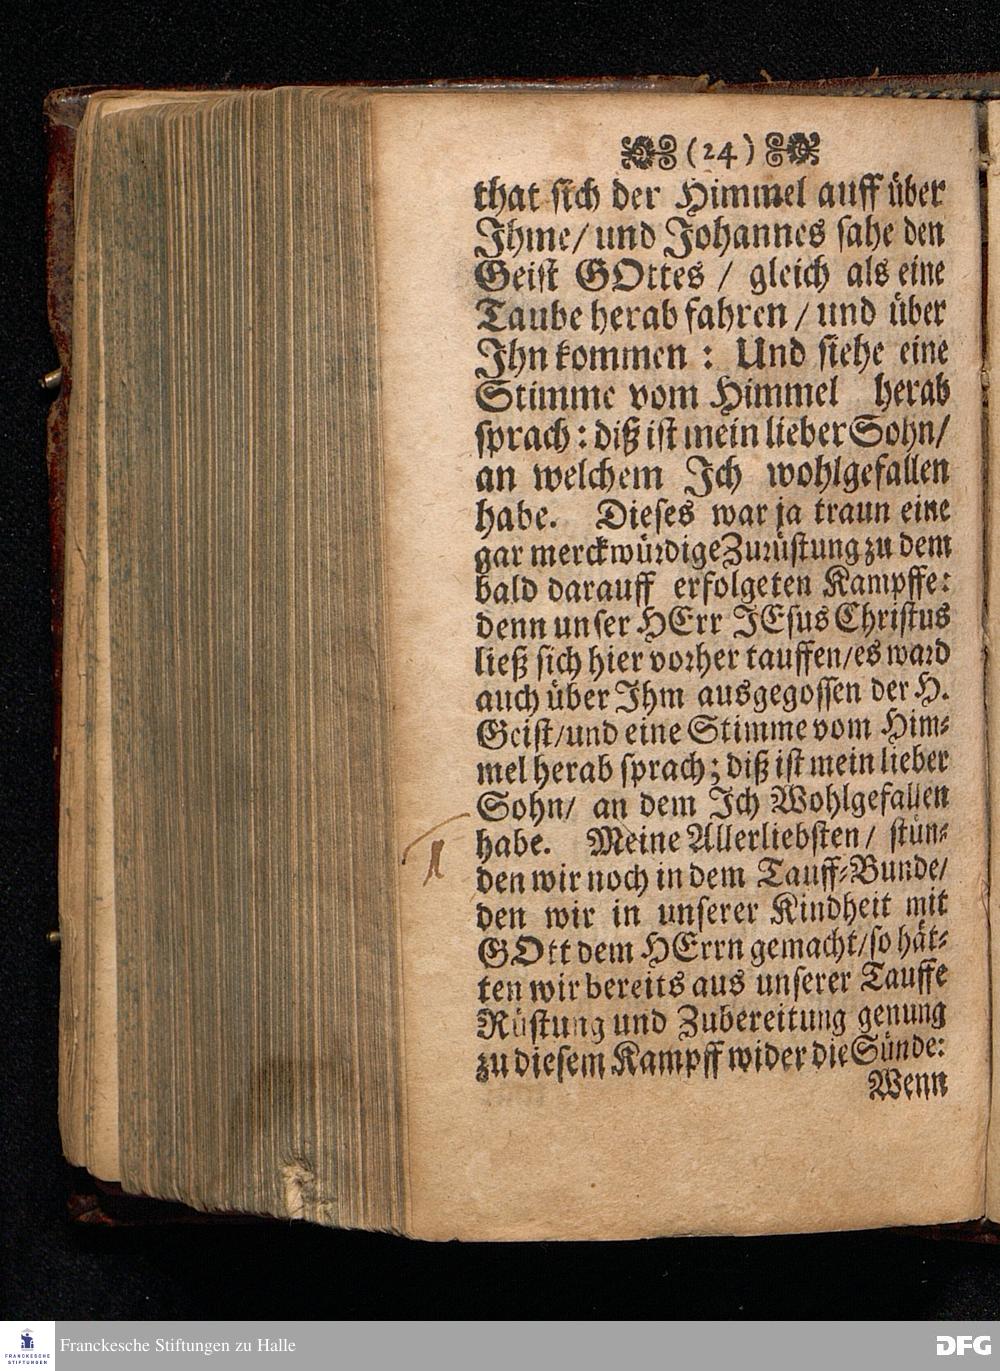 (24)
that sich der Himmel auff über
Ihme/ und Johannes sahe den
Geist GOttes / gleich als eine
Taube herab fahren / und über
Ihn kommen : Und siehe eine
Stimme vom Himmel herab
sprach : diß ist mein lieber Sohn/
an welchem Ich wohlgefallen
habe. Dieses war ja traun eine
gar merckwürdige Zurüstung zu dem
bald darauff erfolgeten Kampffe:
denn unser HErr JEsus Christus
ließ sich hier vorher tauffen/es ward
auch über Ihm ausgegossen der H.
Geist/und eine Stimme vom Him-
mel herab sprach; diß ist mein lieber
Sohn/ an dem Ich Wohlgefallen
habe. Meine Allerliebsten/ stün-
den wir noch in dem Tauff-Bunde/
den wir in unserer Kindheit mit
GOtt dem HErrn gemacht/so hät-
ten wir bereits aus unserer Tauffe
Rüstung und Zubereitung genung
zu diesem Kampff wider die Sünde:
Wenn
FRANCKESCHE
STIFTUNGEN
Franckesche Stiftungen zu Halle
DFG